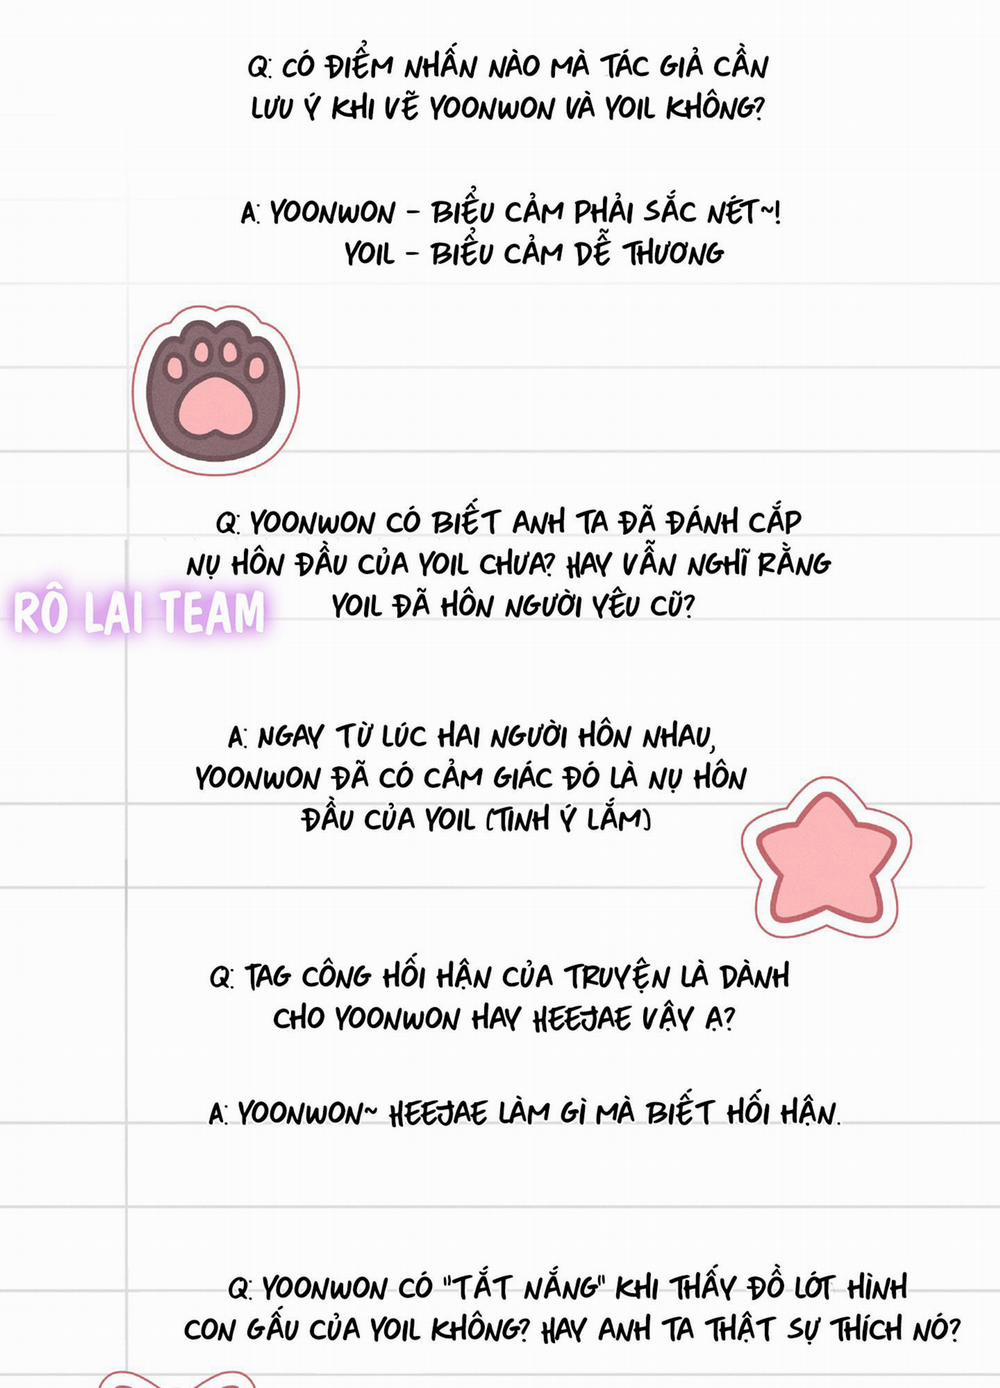 Q: CÓ ĐIỂM NHẤN NÀO MÀ TÁC GIẢ CẦN
LƯU Ý KHI VẼ YOONWON VÀ YOIL KHÔNG?
A: YOONWON - BIỂU CẢM PHẢI SẮC NÉT~!
YOIL - BIỂU CẢM DỄ THƯƠNG
Q: YOONWON CÓ BIẾT ANH TA ĐÃ ĐÁNH CẮP
NỤ HÔN ĐẦU CỦA YOIL CHƯA? HAY VẪN NGHĨ RẰNG
YOIL ĐÃ HÔN NGƯỜI YÊU CŨ?
RÔ LAI TEAM
A: NGAY TỪ LÚC HAI NGƯỜI HÔN NHAU,
YOONWON ĐÃ CÓ CẢM GIÁC ĐÓ LÀ NỤ HÔN
ĐẦU CỦA YOIL (TINH Ý LẮM)
Q: TAG CÔNG HỐI HẬN CỦA TRUYỆN LÀ DÀNH
CHO YOONWON HAY HEEJAE VẬY Ạ?
A: YOONWON~ HEEJAE LÀM GÌ MÀ BIẾT HỐI HẬN.
Q: YOONWON CÓ "TẮT NẮNG" KHI THẤY ĐỒ LÓT HÌNH
CON GẤU CỦA YOIL KHÔNG? HAY ANH TA THẬT SỰ THÍCH NÓ?